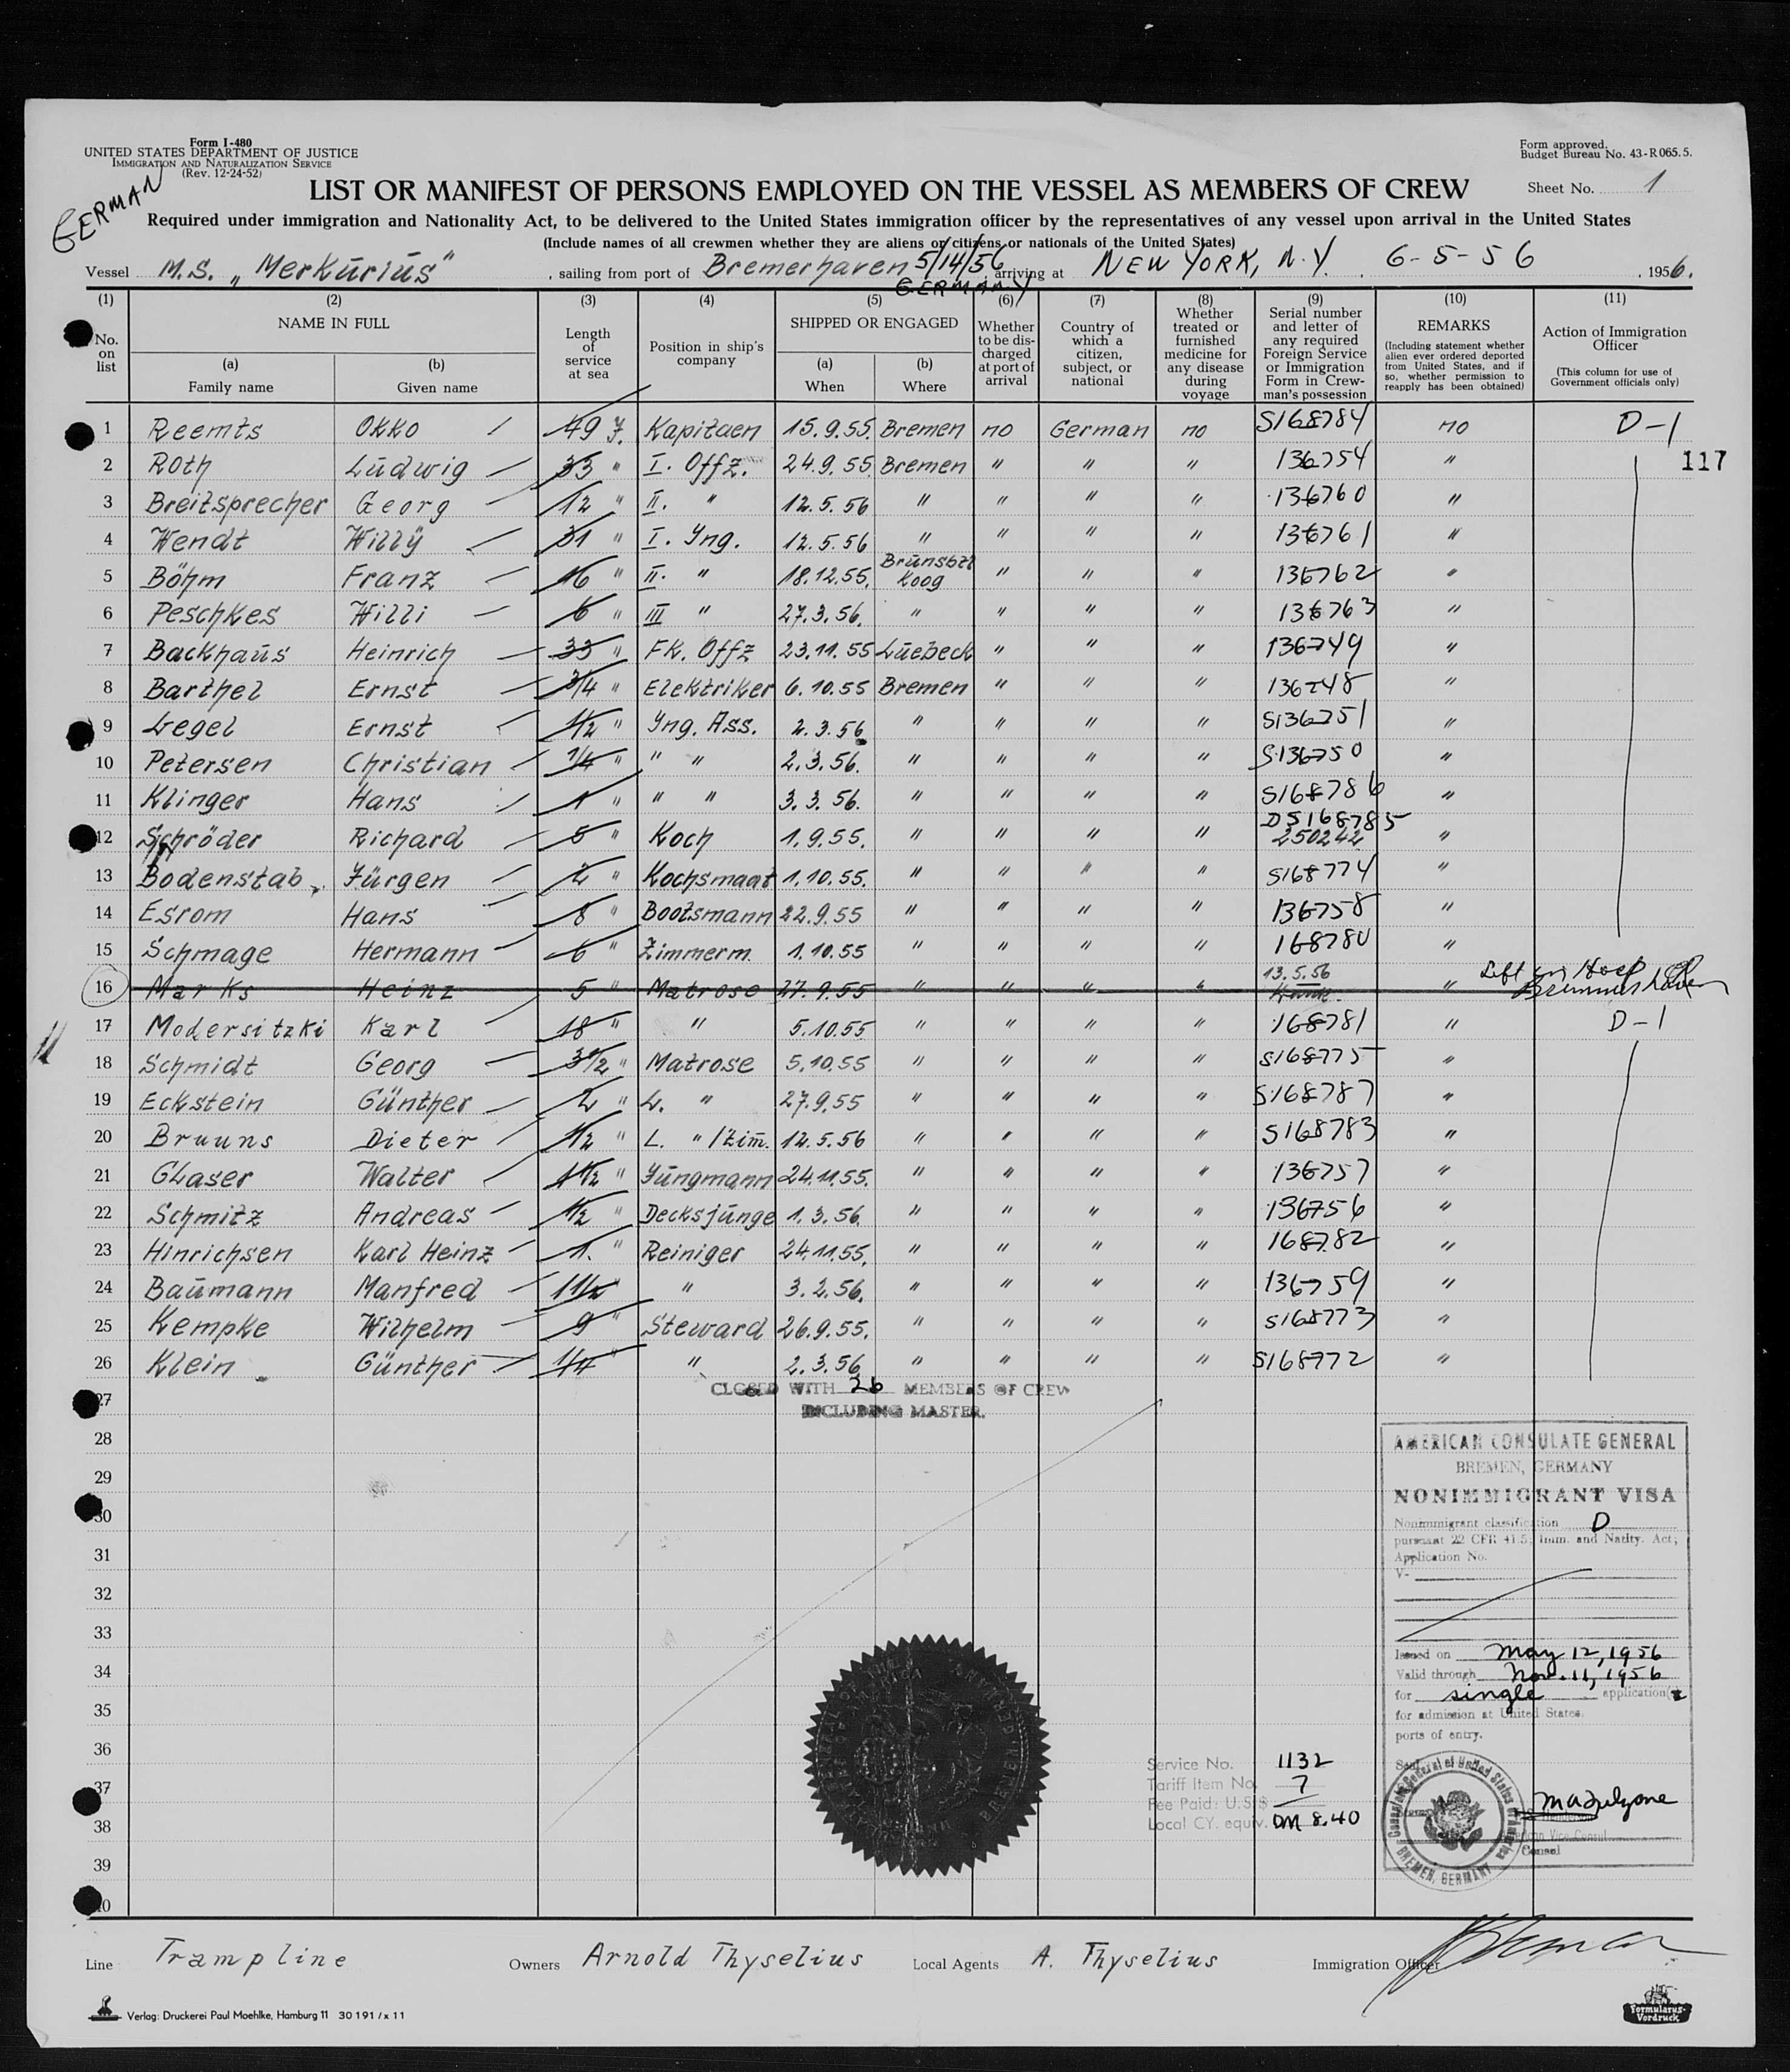 Form I-480
UNITED STATES DEPARTMENT OF JUSTICE
IMMIGRATION AND NATURALIZATION SERVICE
(Rev. 12-24-52)
Form approved.
Budget Bureau No. 43-R065.5.
GERMAN
LIST OR MANIFEST OF PERSONS EMPLOYED ON THE VESSEL AS MEMBERS OF CREW
Sheet No. 1
Required under immigration and Nationality Act, to be delivered to the United States immigration officer by the representatives of any vessel upon arrival in the United States
(Include names of all crewmen whether they are aliens or citizens or nationals of the United States)
Vessel M.S. „Merkūriūs“, sailing from port of Bremerhaven 5/14/56, arriving at NEW YORK, N.Y. 6-5-56, 1956.
GERMANY
(1) (2) (3) (4) (5) (6) (7) (8) (9) (10) (11)
No. on list
NAME IN FULL
(a) Family name
(b) Given name
Length of service at sea
Position in ship's company
SHIPPED OR ENGAGED
(a) When
(b) Where
Whether to be discharged at port of arrival
Country of which a citizen, subject, or national
Whether treated or furnished medicine for any disease during voyage
Serial number and letter of any required Foreign Service or Immigration Form in Crewman's possession
REMARKS
(Including statement whether alien ever ordered deported from United States, and if so, whether permission to reapply has been obtained)
Action of Immigration Officer
(This column for use of Government officials only)
1 Reemts Okko 49 J. Kapitaen 15.9.55. Bremen no German no S168784 no D-1
117
2 Roth Lūdwig 33 " I. Offz. 24.9.55 Bremen " " " 136754 "
3 Breitsprecher Georg 12 " II. " 12.5.56 " " " " 136760 "
4 Wendt Willÿ 31 " I. Yng. 12.5.56 " " " " 136761 "
5 Böhm Franz 16 " II. " 18.12.55. Brūnsbtl Koog " " " 136762 "
6 Peschkes Willi 6 " III " 27.3.56. " " " " 136763 "
7 Backhaūs Heinrich 33 " FK. Offz 23.11.55 Lūebeck " " " 136749 "
8 Barthel Ernst 3/4 " Elektriker 6.10.55 Bremen " " " 136748 "
9 Legel Ernst 1/2 " Yng. Ass. 2.3.56 " " " " S136751 "
10 Petersen Christian 1/4 " " " 2.3.56. " " " " S136750 "
11 Klinger Hans 1 " " " 3.3.56. " " " " S168786 "
12 Schröder Richard 5 " Koch 1.9.55. " " " " DS168785 250242 "
13 Bodenstab Jürgen 2 " Kochsmaat 1.10.55. " " " " S168774 "
14 Esrom Hans 8 " Bootsmann 22.9.55 " " " " 136758 "
15 Schmage Hermann 6 " Zimmerm. 1.10.55 " " " " 168780 "
16 Marks Heinz 5 " Matrose 27.9.55 " " " " 13.5.56 " Left in Hosp Bremmerhaven
17 Modersitzki Karl 18 " " 5.10.55 " " " " 168781 " D-1
18 Schmidt Georg 3 1/2 " Matrose 5.10.55 " " " " S168775 "
19 Eckstein Günther 2 " L. " 27.9.55 " " " " S168787 "
20 Bruuns Dieter 1/2 " L. " /Zim̄. 12.5.56 " " " " S168783 "
21 Glaser Walter 1 1/2 " Jūngmann 24.11.55. " " " " 136757 "
22 Schmitz Andreas 1/2 " Decksjūnge 1.3.56. " " " " 136756 "
23 Hinrichsen Karl Heinz 1. " Reiniger 24.11.55. " " " " 168782 "
24 Baūmann Manfred 1 1/2 " " 3.2.56. " " " " 136759 "
25 Kempke Wilhelm 9 " Steward 26.9.55. " " " " S168773 "
26 Klein Günther 1/4 " " 2.3.56 " " " " S168772 "
CLOSED WITH 26 MEMBERS OF CREW
INCLUDING MASTER.
27
28
29
30
31
32
33
34
35
36
37
38
39
40
AMERICAN CONSULATE GENERAL
BREMEN, GERMANY
NONIMMIGRANT VISA
Nonimmigrant classification D
pursuant 22 CFR 41.5; Imm. and Natlty. Act;
Application No.
V-
Issued on May 12, 1956
Valid through Nov. 11, 1956
for single application(s)
for admission at United States.
ports of entry.
Seal
Consulate General of United States of America
BREMEN, GERMANY
Vice Consul
Consul
Service No. 1132
Tariff Item No. 7
Fee Paid: U.S.$
Local CY. equiv. DM 8.40
Line Trampline Owners Arnold Thyselius Local Agents A. Thyselius Immigration Officer
Verlag: Druckerei Paul Moehlke, Hamburg 11 30 191 / x 11
Formularus-Vordruck